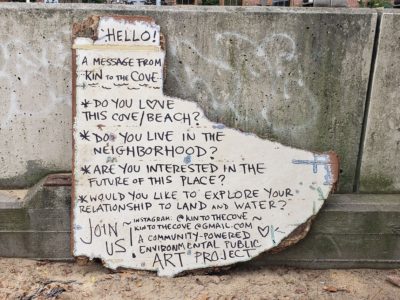 HELLO!
A MESSAGE FROM
KIN TO THE COVE
* DO YOU LOVE
THIS COVE/BEACH?
* DO YOU LIVE IN THE
NEIGHBORHOOD?
* ARE YOU INTERESTED IN THE
FUTURE OF THIS PLACE?
* WOULD YOU LIKE TO EXPLORE YOUR
RELATIONSHIP TO LAND AND WATER?
JOIN US!
~ INSTAGRAM: @KINTOTHECOVE ~
KINTOTHECOVE@GMAIL.COM
A COMMUNITY-POWERED
ENVIRONMENTAL PUBLIC
ART PROJECT